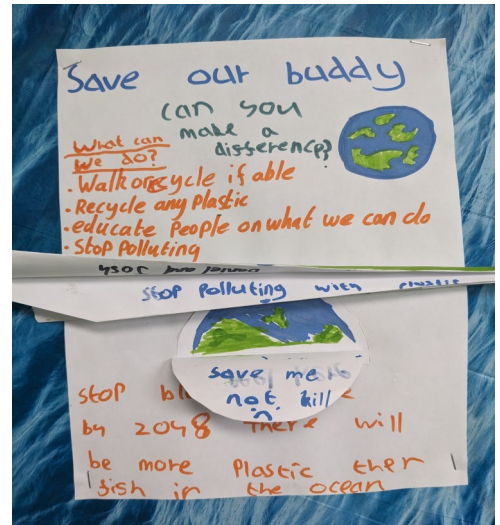 Save our buddy
can you
make a
difference?
What can
We do?
• Walk or cycle if able
• Recycle any Plastic
• educate People on what we can do
• Stop Polluting
Stop Polluting with plastic
save me
not kill
stop
by 2048 there will
be more Plastic then
fish in the ocean